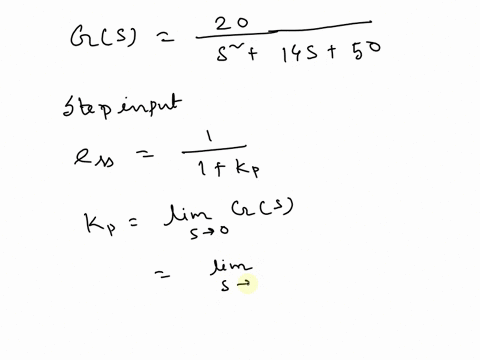 G(s) = 20 / s² + 14s + 50
Step input
ess = 1 / 1 + Kp
Kp = lim s→0 G(s)
= lim s→